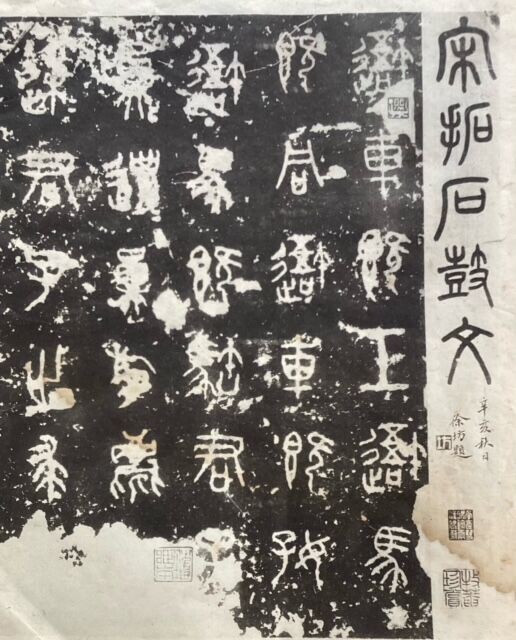 宋拓石鼓文
辛亥秋日
徐坊題
避車既工避馬
既同避車既好
避馬既𩢾君子
員邋員斿麀鹿
速君子之求